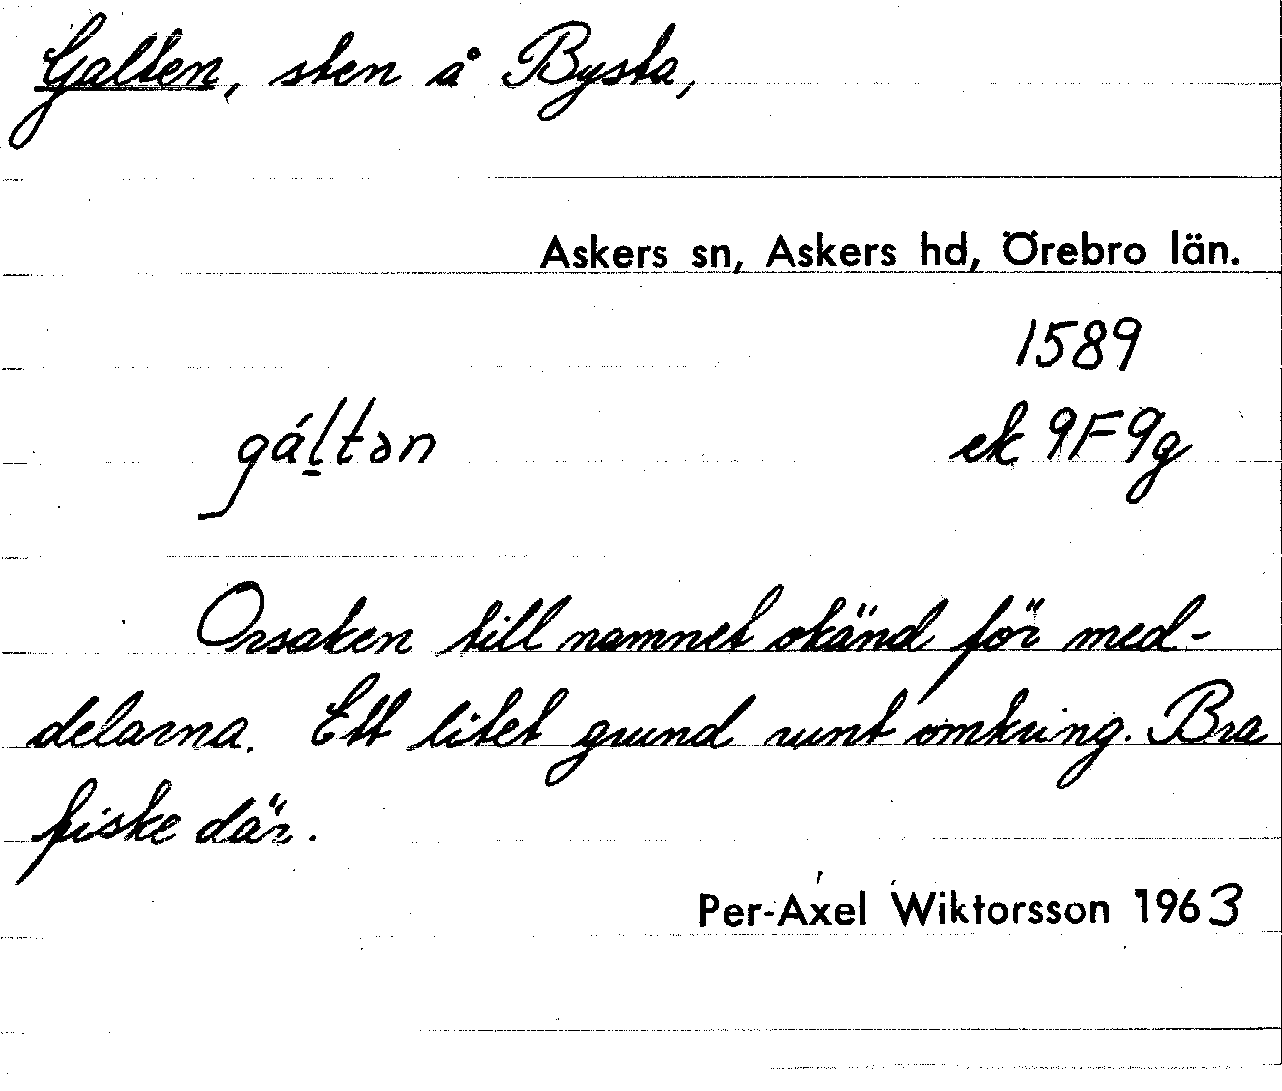 Galten, sten å Bysta,
Askers sn, Askers hd, Örebro län.
1589
gáḻtən
ek 9F9g
Orsaken till namnet okänd för med-
delarna. Ett litet grund runt omkring. Bra
fiske där.
Per-Axel Wiktorsson 1963